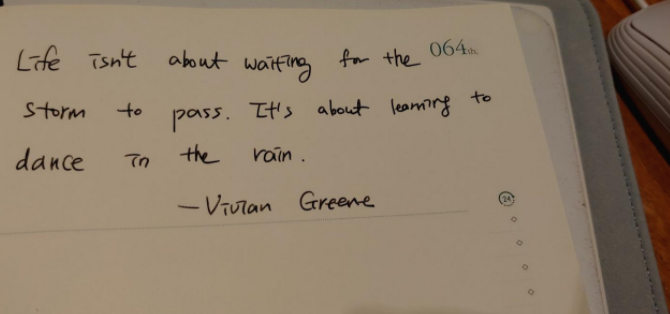 Life isn't about waiting for the 064th.
storm to pass. It's about learning to
dance in the rain.
—Vivian Greene
24